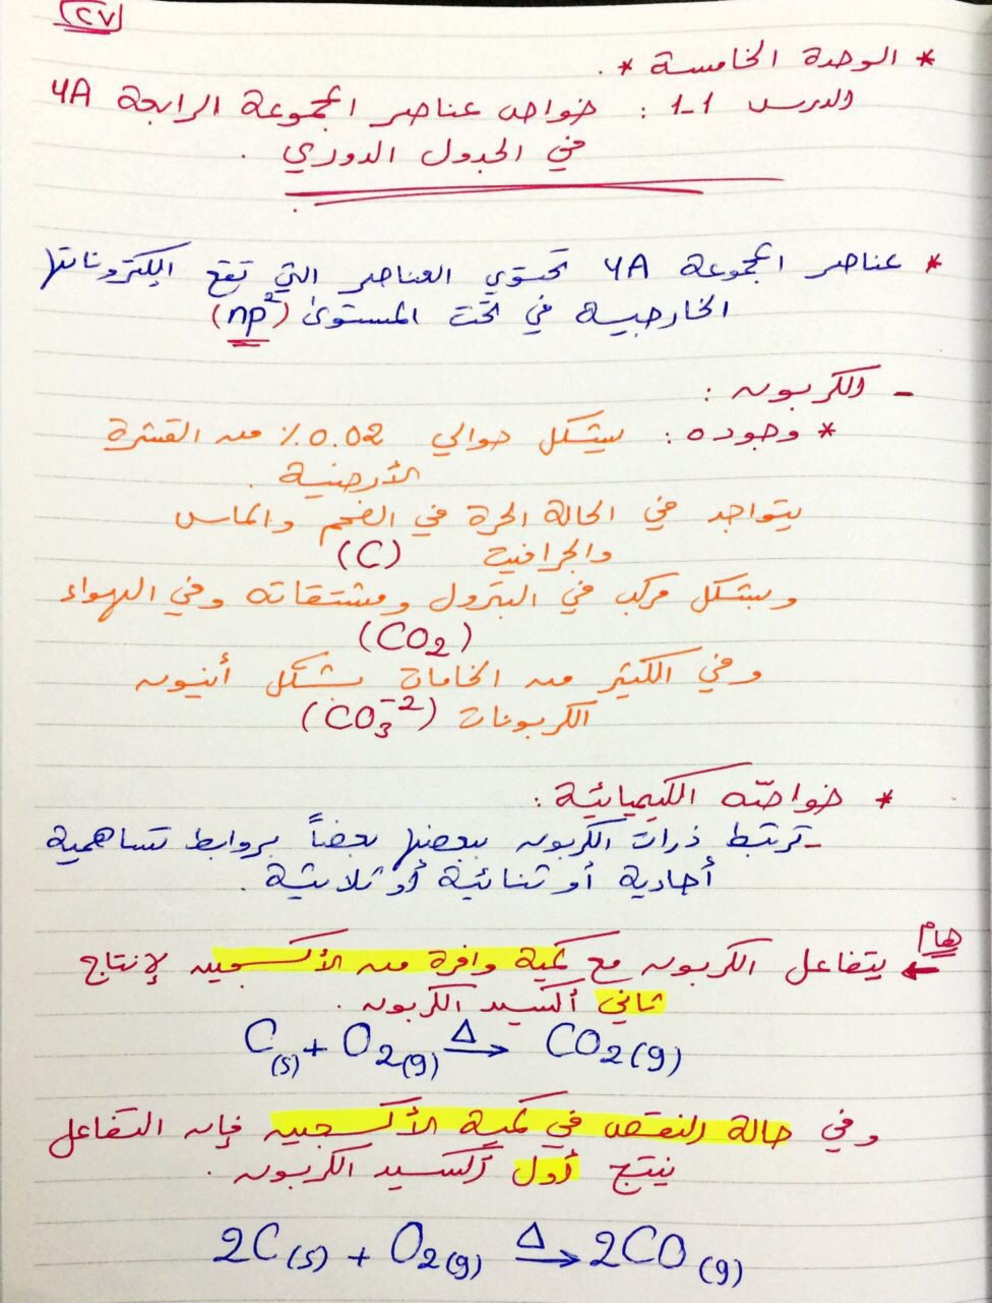 ٢٧
* الوحدة الخامسة * .
الدرس 1-1 : خواص عناصر المجموعة الرابعة 4A
في الجدول الدوري .
* عناصر المجموعة 4A تحتوي العناصر التي تقع إلكتروناتها
الخارجية في تحت المستوى (np²)
- الكربون :
* وجوده : يشكل حوالي 0.02 ٪ من القشرة
الأرضية .
يتواجد في الحالة الحرة في الفحم والماس
والجرافيت (C)
وبشكل مركب في البترول ومشتقاته وفي الهواء
(CO₂)
وفي الكثير من الخامات بشكل أنيون
الكربونات (CO₃⁻²)
* خواصّه الكيميائية :
- ترتبط ذرات الكربون ببعضها بعضاً بروابط تساهمية
أحادية أو ثنائية أو ثلاثية .
هام
← يتفاعل الكربون مع كمية وافرة من الأكسجين لإنتاج
ثاني أكسيد الكربون .
C(s) + O₂(g) —Δ→ CO₂(g)
وفي حالة النقص في كمية الأكسجين فإن التفاعل
ينتج أول أكسيد الكربون .
2C(s) + O₂(g) —Δ→ 2CO(g)